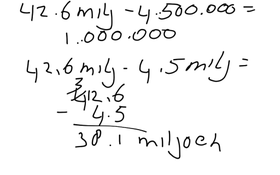 42.6 milj - 4.500.000 =
1.000.000
42,6 milj - 4,5 milj =
3
42,6
- 4.5
38.1 miljoen